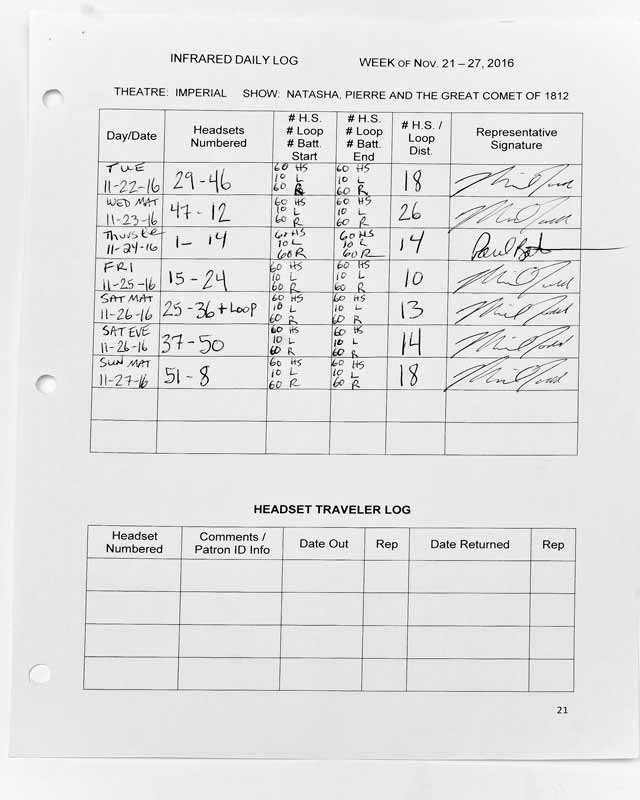 INFRARED DAILY LOG WEEK OF NOV. 21 – 27, 2016
THEATRE: IMPERIAL SHOW: NATASHA, PIERRE AND THE GREAT COMET OF 1812
Day/Date
Headsets
Numbered
# H.S.
# Loop
# Batt.
Start
# H.S.
# Loop
# Batt.
End
# H.S. /
Loop
Dist.
Representative
Signature
TUE
11-22-16
29-46
60 HS
10 L
60 R
60 HS
10 L
60 R
18
WED MAT
11-23-16
47-12
60 HS
10 L
60 R
60 HS
10 L
60 R
26
11-24-16
1- 14
60 HS
10 L
60 R
60 HS
10 L
60 R
14
FRI
11-25-16
15-24
60 HS
10 L
60 R
60 HS
10 L
60 R
10
SAT MAT
11-26-16
25-36 + LOOP
60 HS
10 L
60 R
60 HS
10 L
60 R
13
SAT EVE
11-26-16
37-50
60 HS
10 L
60 R
60 HS
10 L
60 R
14
SUN MAT
11-27-16
51-8
60 HS
10 L
60 R
60 HS
10 L
60 R
18
HEADSET TRAVELER LOG
Headset
Numbered
Comments /
Patron ID Info
Date Out
Rep
Date Returned
Rep
21